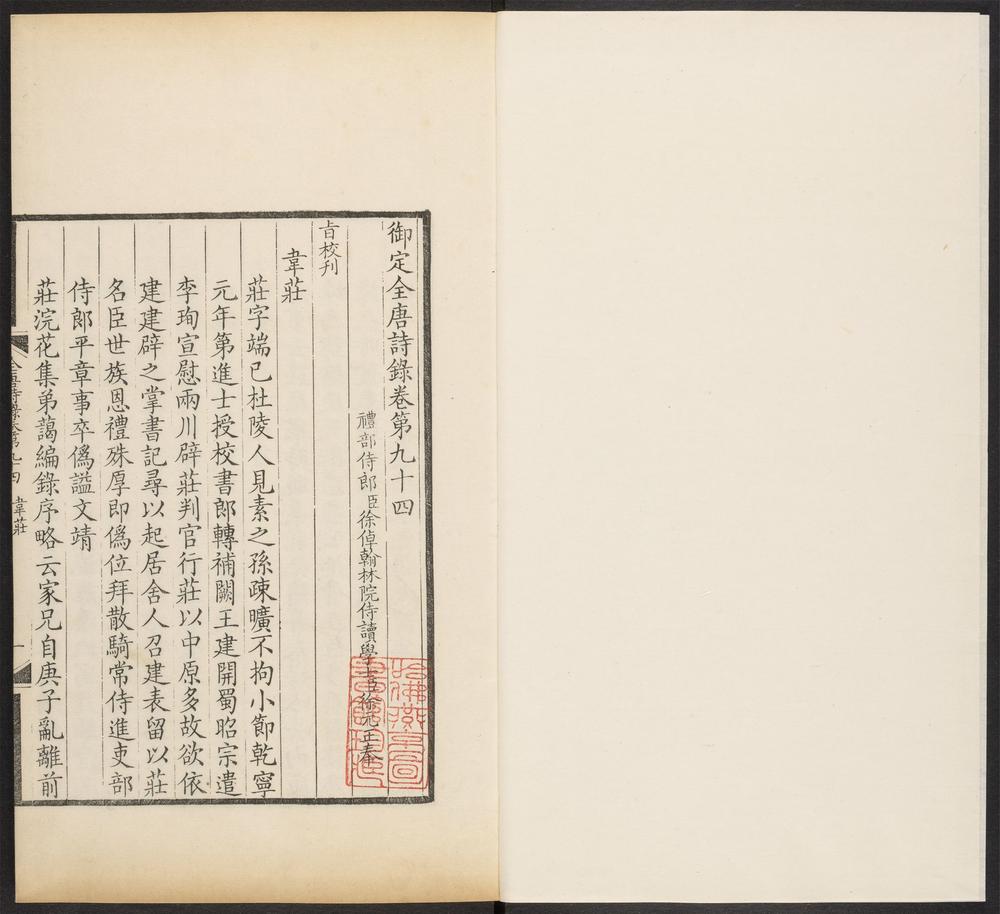 御定全唐詩錄卷第九十四
禮部侍郎臣徐倬翰林院侍讀學士臣徐元正奉
旨校刊
韋莊
莊字端己杜陵人見素之孫疎曠不拘小節乾寧
元年第進士授校書郎轉補闕王建開蜀昭宗遣
李珣宣慰兩川辟莊判官行莊以中原多故欲依
建建辟之掌書記尋以起居舍人召建表留以莊
名臣世族恩禮殊厚即僞位拜散騎常侍進吏部
侍郎平章事卒僞謚文靖
莊浣花集弟藹編錄序略云家兄自庚子亂離前
全唐詩錄卷第九十四 韋莊 一
哈佛燕京圖書館珍藏印